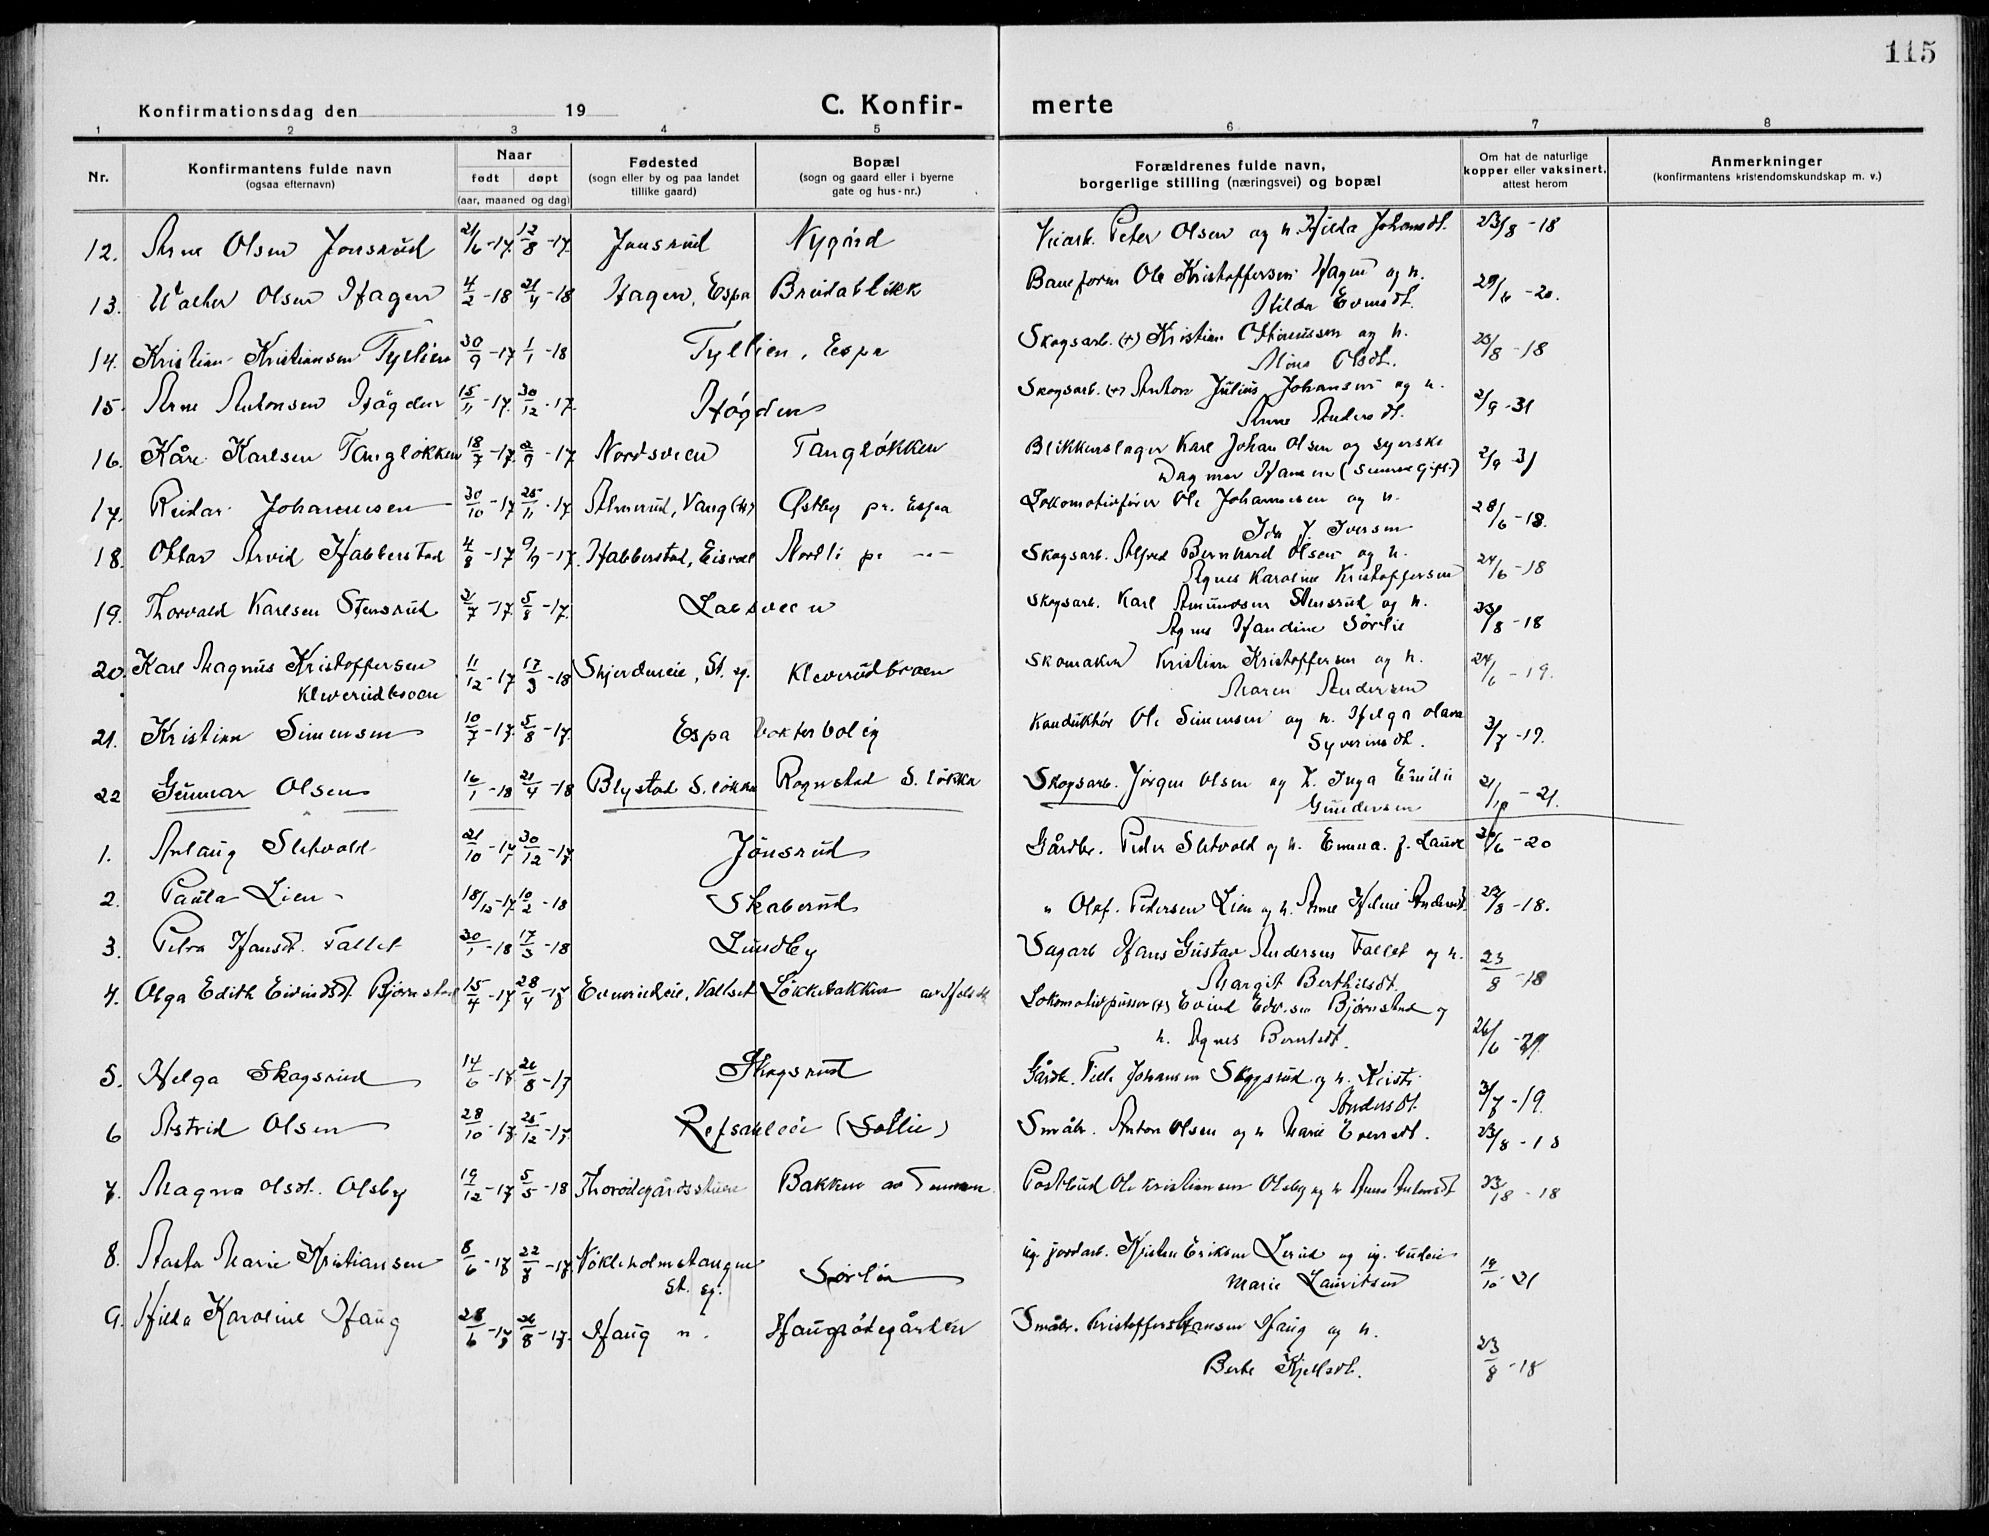 115
Konfirmationsdag den 19 C. Konfir- merte
1 2 3 4 5 6 7 8
Nr.
Konfirmantens fulde navn
(ogsaa efternavn)
Naar
født døpt
(aar, maaned og dag)
Fødested
(sogn eller by og paa landet
tillike gaard)
Bopæl
(sogn og gaard eller i byerne
gate og hus-nr.)
Forældrenes fulde navn,
borgerlige stilling (næringsvei) og bopæl
Om hat de naturlige
kopper eller vaksinert,
attest herom
Anmerkninger
(konfirmantens kristendomskundskap m. v.)
12. Arne Olsen Jønsrud 21/6-17 12/8-17. Jønsrud Nygård Peter Olsen og h. Hilda Johansdt. 23/8-18
13. Walter Olsen Hagen 4/2-18 21/4-18 Hagen, Espa Breidablikk Baneform Ole Kristoffersen Hagen og h. 29/6-20.
Hilda Evensdt.
14. Kristian Kristiansen Tyllien 30/9-17 1/1-18 Tyllien, Espa Skogsarb. (+) Kristian Ottinussen og h. 23/8-18
Mina Olsdt.
15. Arne Antonsen Høgden 15/11-17. 30/12-17. Høgden Skogsarb. (+) Anton Julius Johansen og h. 2/9-31
Anne Andersdt.
16. Kåre Karlsen Tangløkken 18/7-17. 2/9-17 Nordsveen Tangløkken Blikkenslager Karl Johan Olsen og syerske 2/9-31
Dagmar Hansen (senere gift.)
17. Reidar Johannesen 30/10-17 25/11-17 Almerud, Vang (H) Østby pr. Espa Lokomotivfører Ole Johannesen og h. 28/6-18.
Ida J. Iversen
18. Ottar Arvid Habberstad 4/8-17 9/9-17. Habberstad, Eidsvoll Nordli pr. -"- Skogsarb. Alfred Bernhard Olsen og h. 24/6-18
Agnes Karoline Kristoffersen
19. Thorvald Karlsen Stensrud 21/7-17. 5/8-17. Labsveen Skogsarb. Karl Amundsen Stensrud og h. 23/8-18
Agnes Handine Sørlie
20. Karl Magnus Kristoffersen 11/12-17 17/3-18 Skjerdeneie, St. sg. Kleverudbroen Skomaker Kristian Kristoffersen og h. 24/6-19.
Kleverudbroen Maren Andersen
21. Kristian Simensen 10/7-17. 5/8-17. Espa vokterbolig Konduktør Ole Simensen og h. Helga Olava 3/7-19.
Syverinsdt.
22 Gunnar Olsen 16/1-18 21/4-18 Blystad S. løkka Rognstad S. løkka Skogsarb. Jørgen Olsen og h. Inga Emilie 21/10-21.
Gundersen
1. Anlaug Sletvold 21/10-17 30/12-17 Jønsrud Gårdbr. Peder Sletvold og h. Emma f. Lande 20/6-20
2. Paula Lien 18/12-17. 10/2-18 Skaberud " Olaf Pedersen Lien og h. Anne Helene Andersdt. 22/8-18.
3. Petra Hansdt. Fallet 30/1-18 17/3-18 Lundby Sagarb Hans Gustav Andersen Fallet og h. 23/8-18
Margit Berthilsdt.
4. Olga Edith Eivindsdt. Bjørnstad 15/4-17 28/4-18 Evenrudeie, Vallset Løkkebakken Lokomotivpusser (+) Eivind Edv.sen Bjørnstad og 26/6-29.
h. Agnes Berntsdt.
5. Helga Skogsrud 14/6-17 26/8-17 Skogsrud Gårdb. Johansen Skogsrud og h. Kristi 3/7-19.
Andersdt.
6 Astrid Olsen 28/10-17. 25/12-17. Refsaleie (Sollie) Småbr. Anton Olsen og h Marie Evensdt. 23/8-18
7. Magna Olsdt. Olsby 19/12-17 5/5-18 Thorødegårdsstuen Bakken av Postbud Ole Kristiansen Olsby og h Anna Antonsdt 23/8-18
8. Aasta Marie Kristiansen 8/6-17 22/8-17 Nøkleholmstangen Sørlien ug. jordarb. Kristen Eriksen Lerud og ug. budeie 19/10-31
St. sg. Marie Lauritsen
9. Hilda Karoline Haug 28/6-17 26/8-17. Haug n. Haugsødegården Småbr. Kristoffer Hansen Haug og h. 23/8-18
Berte Kjellsdt.